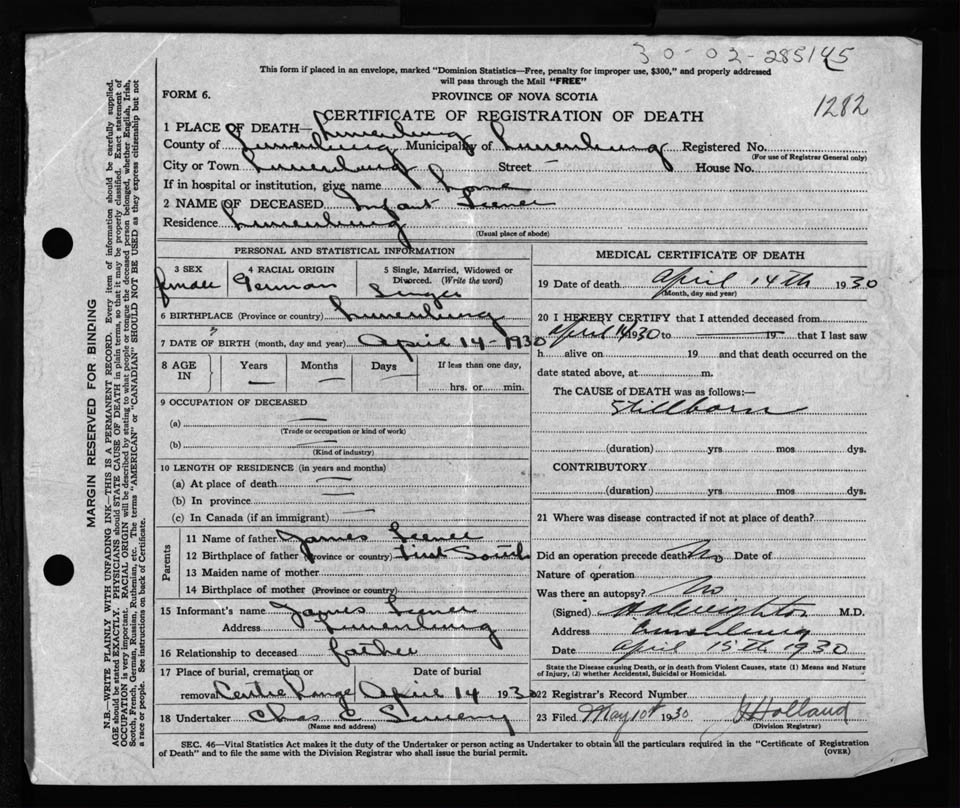 30-02-285145
This form if placed in an envelope, marked "Dominion Statistics—Free, penalty for improper use, $300," and properly addressed
will pass through the Mail "FREE"
FORM 6.
PROVINCE OF NOVA SCOTIA
1282
CERTIFICATE OF REGISTRATION OF DEATH
1 PLACE OF DEATH— Lunenburg
County of Lunenburg Municipality of Lunenburg Registered No.
(For use of Registrar General only)
City or Town Lunenburg Street — House No.
If in hospital or institution, give name home
2 NAME OF DECEASED Infant
Residence Lunenburg
(Usual place of abode)
PERSONAL AND STATISTICAL INFORMATION
3 SEX female
4 RACIAL ORIGIN German
5 Single, Married, Widowed or
Divorced. (Write the word) Single
6 BIRTHPLACE (Province or country) Lunenburg
7 DATE OF BIRTH (month, day and year) April 14 - 1930
8 AGE IN Years — Months — Days — If less than one day,
hrs. or min.
9 OCCUPATION OF DECEASED
(a) —
(Trade or occupation or kind of work)
(b) —
(Kind of industry)
10 LENGTH OF RESIDENCE (in years and months)
(a) At place of death —
(b) In province —
(c) In Canada (if an immigrant) —
Parents
11 Name of father James
12 Birthplace of father (Province or country) First South
13 Maiden name of mother
14 Birthplace of mother (Province or country)
15 Informant's name James
Address Lunenburg
16 Relationship to deceased father
17 Place of burial, cremation or removal Centre Range
Date of burial April 14 1930
18 Undertaker Chas
(Name and address)
MEDICAL CERTIFICATE OF DEATH
19 Date of death April 14th 1930
(Month, day and year)
20 I HEREBY CERTIFY that I attended deceased from
April 14 1930 to — 19 — that I last saw
h alive on 19 and that death occurred on the
date stated above, at m.
The CAUSE OF DEATH was as follows:
Stillborn
(duration) yrs mos dys.
CONTRIBUTORY
(duration) yrs. mos. dys.
21 Where was disease contracted if not at place of death?
Did an operation precede death? No Date of
Nature of operation
Was there an autopsy? No
(Signed) M.D.
Address Lunenburg
Date April 15th 1930
State the Disease causing Death, or in death from Violent Causes, state (1) Means and Nature
of Injury, (2) whether Accidental, Suicidal or Homicidal.
22 Registrar's Record Number
23 Filed May 10th 1930 Holland
(Division Registrar)
SEC. 46—Vital Statistics Act makes it the duty of the Undertaker or person acting as Undertaker to obtain all the particulars required in the "Certificate of Registration
of Death" and to file the same with the Division Registrar who shall issue the burial permit.
(OVER)
MARGIN RESERVED FOR BINDING
N.B.—WRITE PLAINLY WITH UNFADING INK—THIS IS A PERMANENT RECORD. Every item of information should be carefully supplied.
AGE should be stated EXACTLY. PHYSICIANS should STATE CAUSE OF DEATH in plain terms, so that it may be properly classified. Exact statement of
OCCUPATION is very important. RACIAL ORIGIN will be described by stating to what people or tongue the deceased person belonged, whether English, Irish,
Scotch, French, German, Russian, Ruthenian, etc. The terms "AMERICAN" or "CANADIAN" SHOULD NOT BE USED as they express citizenship but not
a race or people. See instructions on back of Certificate.